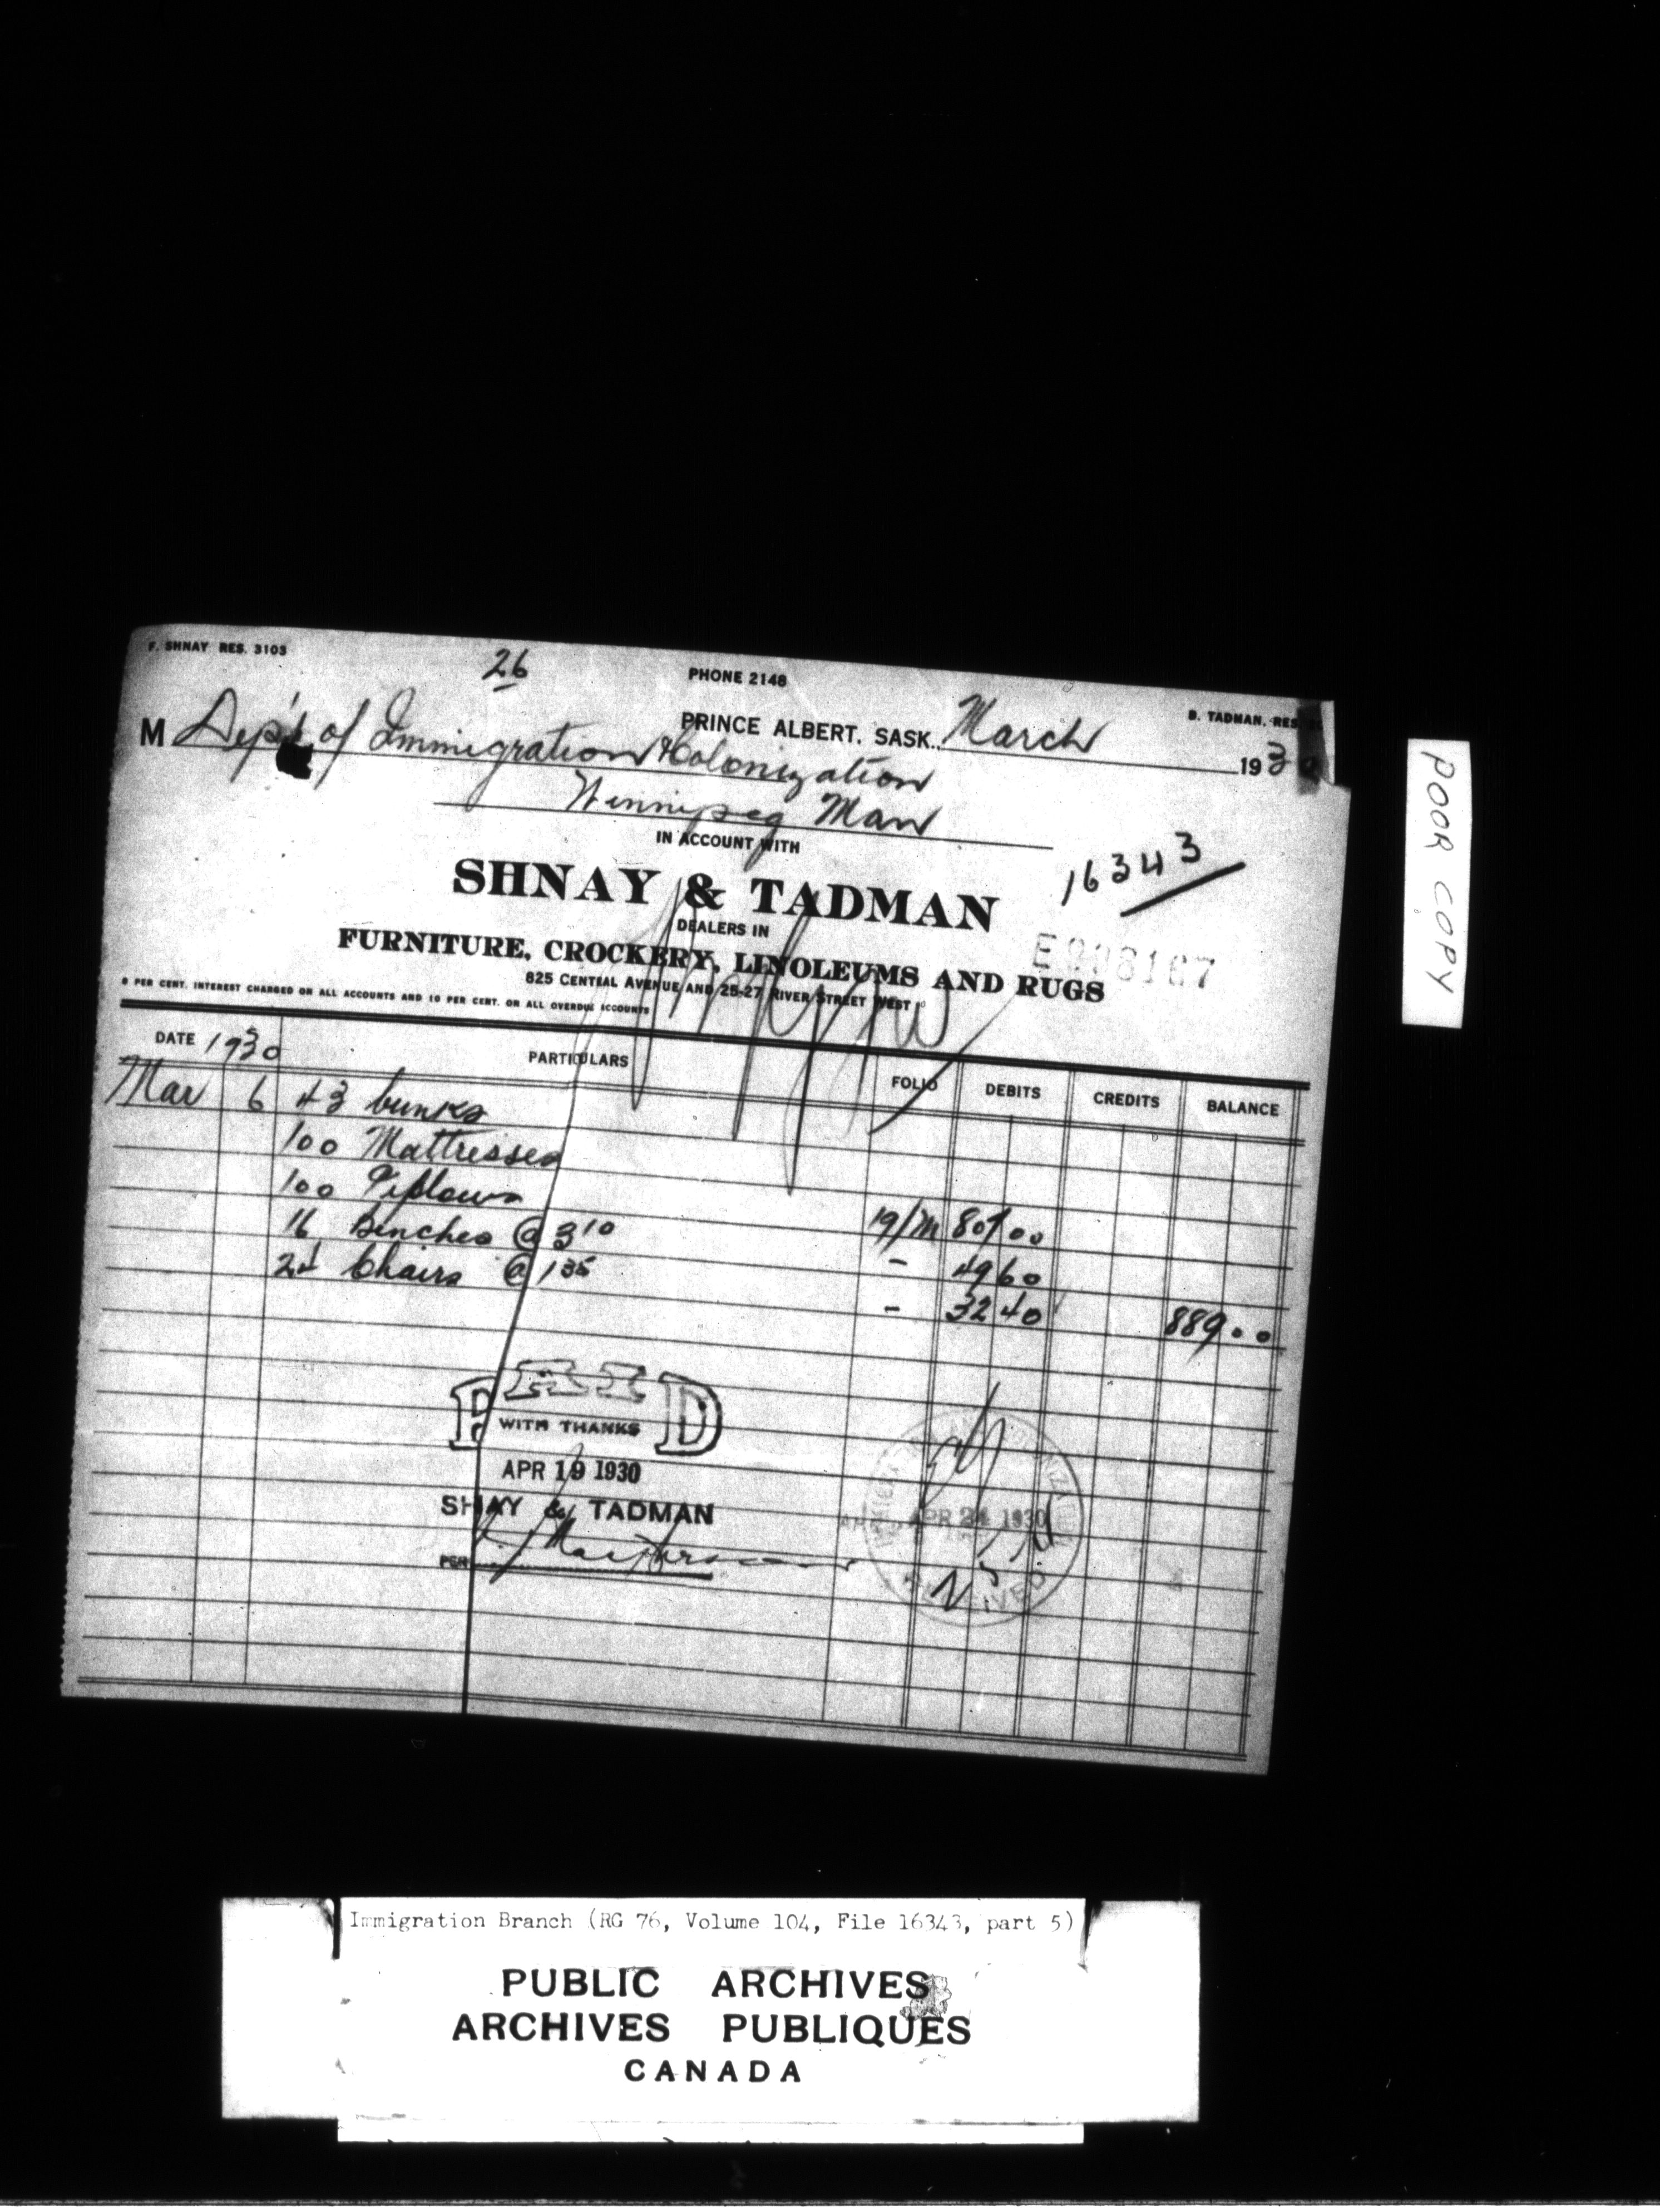 F. SHNAY RES. 3103
26
PHONE 2148
B. TADMAN. RES.
PRINCE ALBERT. SASK. March 1930
M Dep't of Immigration & Colonization
Winnipeg Man
IN ACCOUNT WITH
16343
SHNAY & TADMAN
DEALERS IN
FURNITURE, CROCKERY, LINOLEUMS AND RUGS
825 CENTRAL AVENUE AND 25-27 RIVER STREET WEST
8 PER CENT. INTEREST CHARGED ON ALL ACCOUNTS AND 10 PER CENT. ON ALL OVERDUE ACCOUNTS
DATE 1930 PARTICULARS FOLIO DEBITS CREDITS BALANCE
Mar 6 43 bunks
100 Mattresses
100 Pillows
16 Benches @ 3 10 19/M 807.00
24 Chairs @ 1 35 - 49 60
- 32 40 889.00
PAID
WITH THANKS
APR 19 1930
SHAY & TADMAN
PER
APR 24 1930
RECEIVED
POOR COPY
Immigration Branch (RG 76, Volume 104, File 16343, part 5)
PUBLIC ARCHIVES
ARCHIVES PUBLIQUES
CANADA